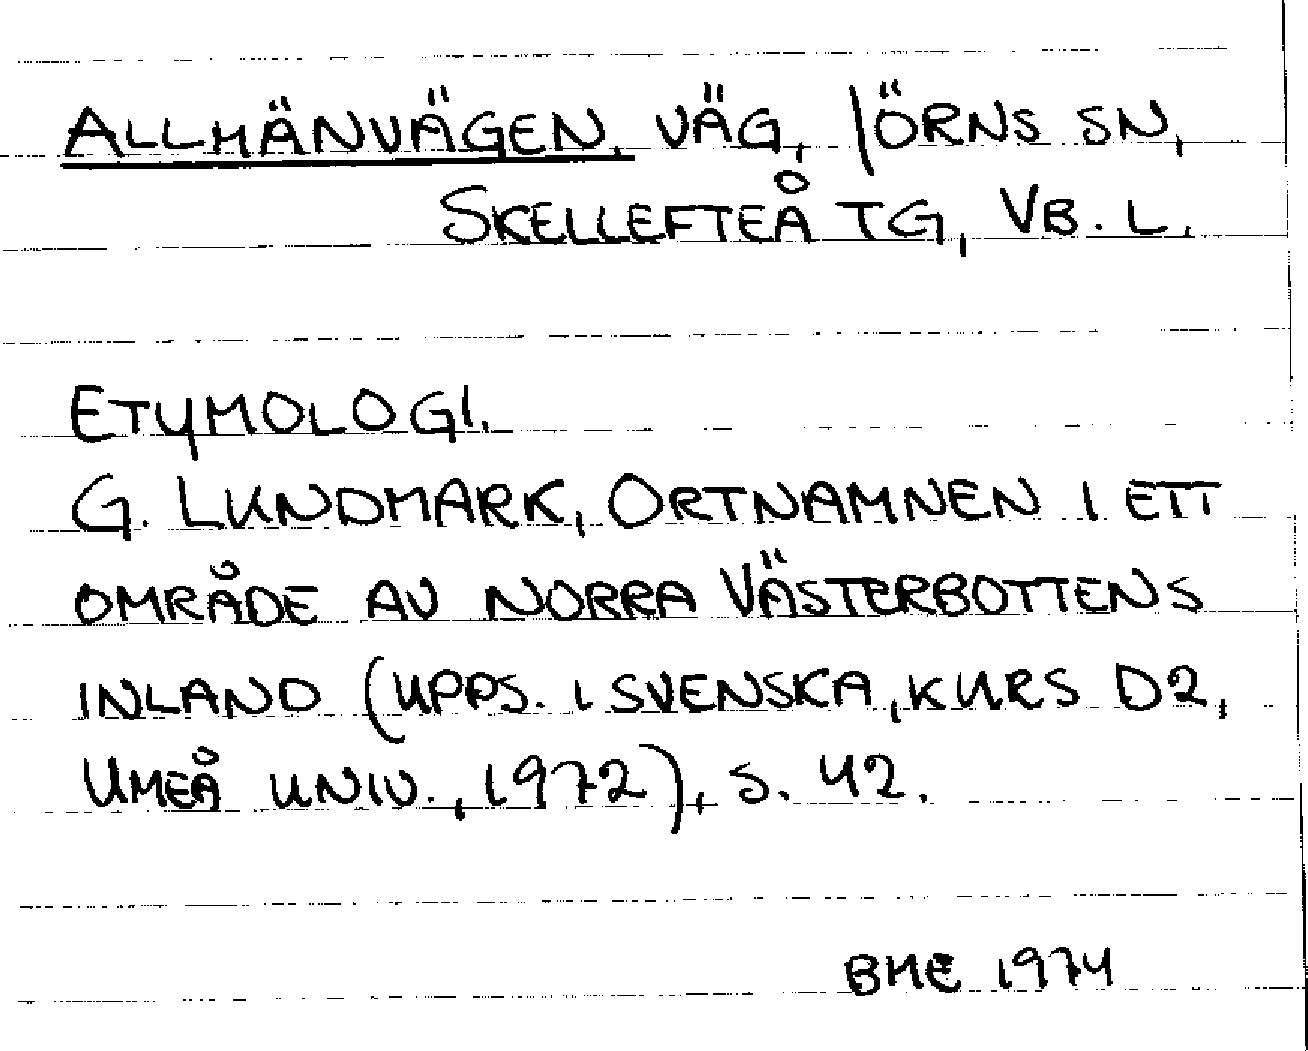 ALLMÄNVÄGEN, VÄG, JÖRNS SN,
SKELLEFTEÅ TG, VB. L.
ETYMOLOGI.
G. LUNDMARK, ORTNAMNEN I ETT
OMRÅDE AV NORRA VÄSTERBOTTENS
INLAND (UPPS. I SVENSKA, KURS D2,
UMEÅ UNIV., 1972), S. 42.
BME 1974